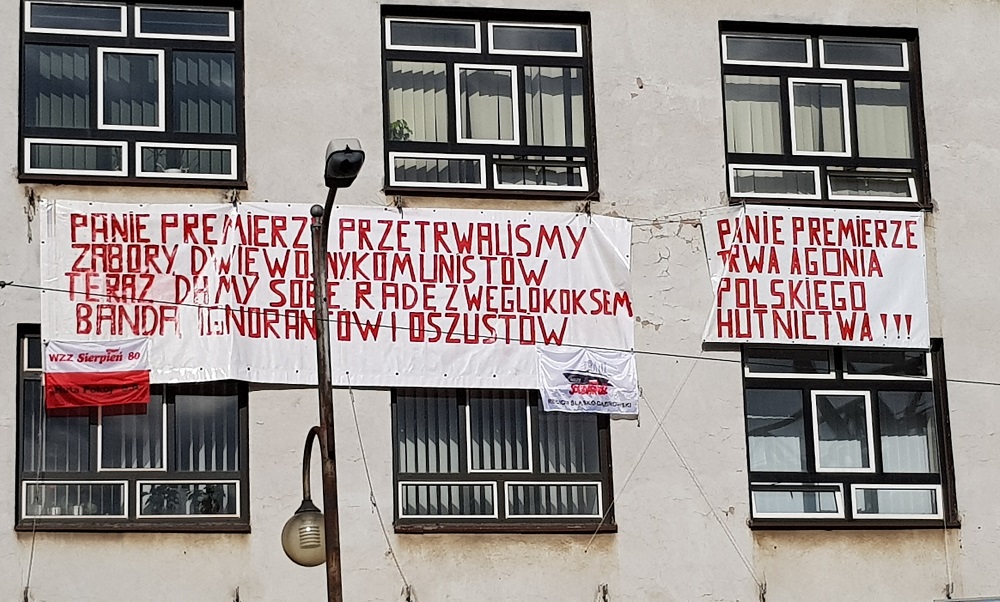 PANIE PREMIERZE PRZETRWALIŚMY
ZABORY DWIE WOJNY KOMUNISTÓW
TERAZ DAMY SOBIE RADE Z WĘGLOKOKSEM
BANDĄ IGNORANTÓW I OSZUSTÓW
WZZ Sierpień 80
PANIE PREMIERZE
TRWA AGONIA
POLSKIEGO
HUTNICTWA!!!